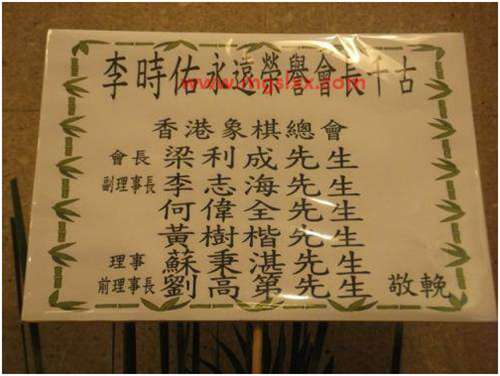 李時佑永遠榮譽會長千古
www.mgslxx.com
香港象棋總會
會長 梁利成先生
副理事長 李志海先生
何偉全先生
黃樹楷先生
理事 蘇秉湛先生
前理事長 劉高第先生 敬輓